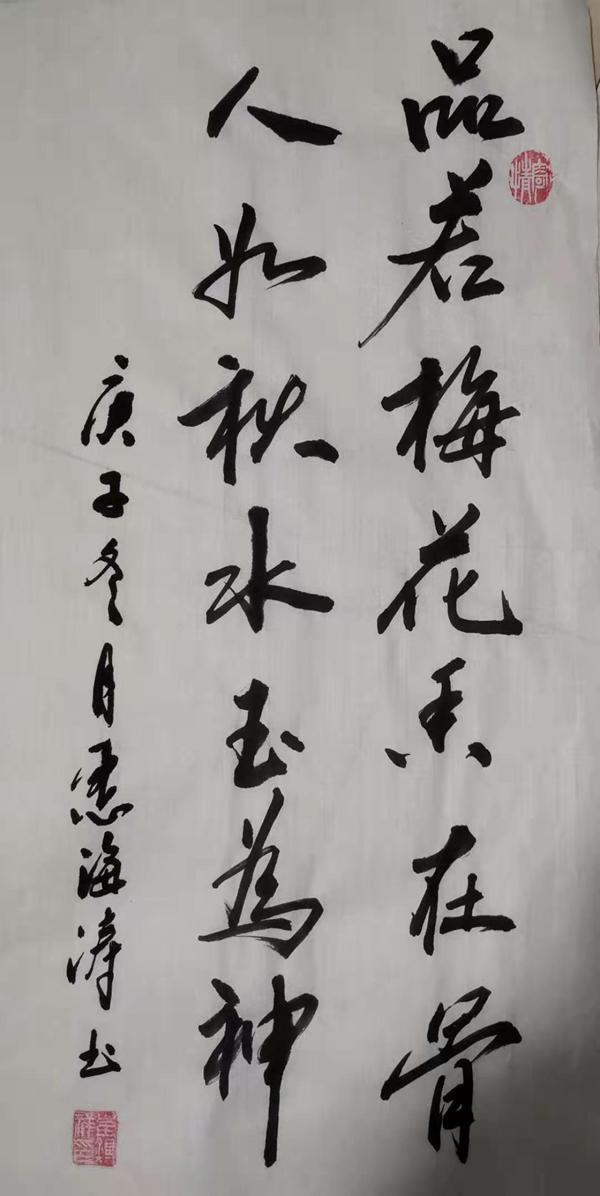 品若梅花香在骨
人如秋水玉為神
庚子冬月 海涛书